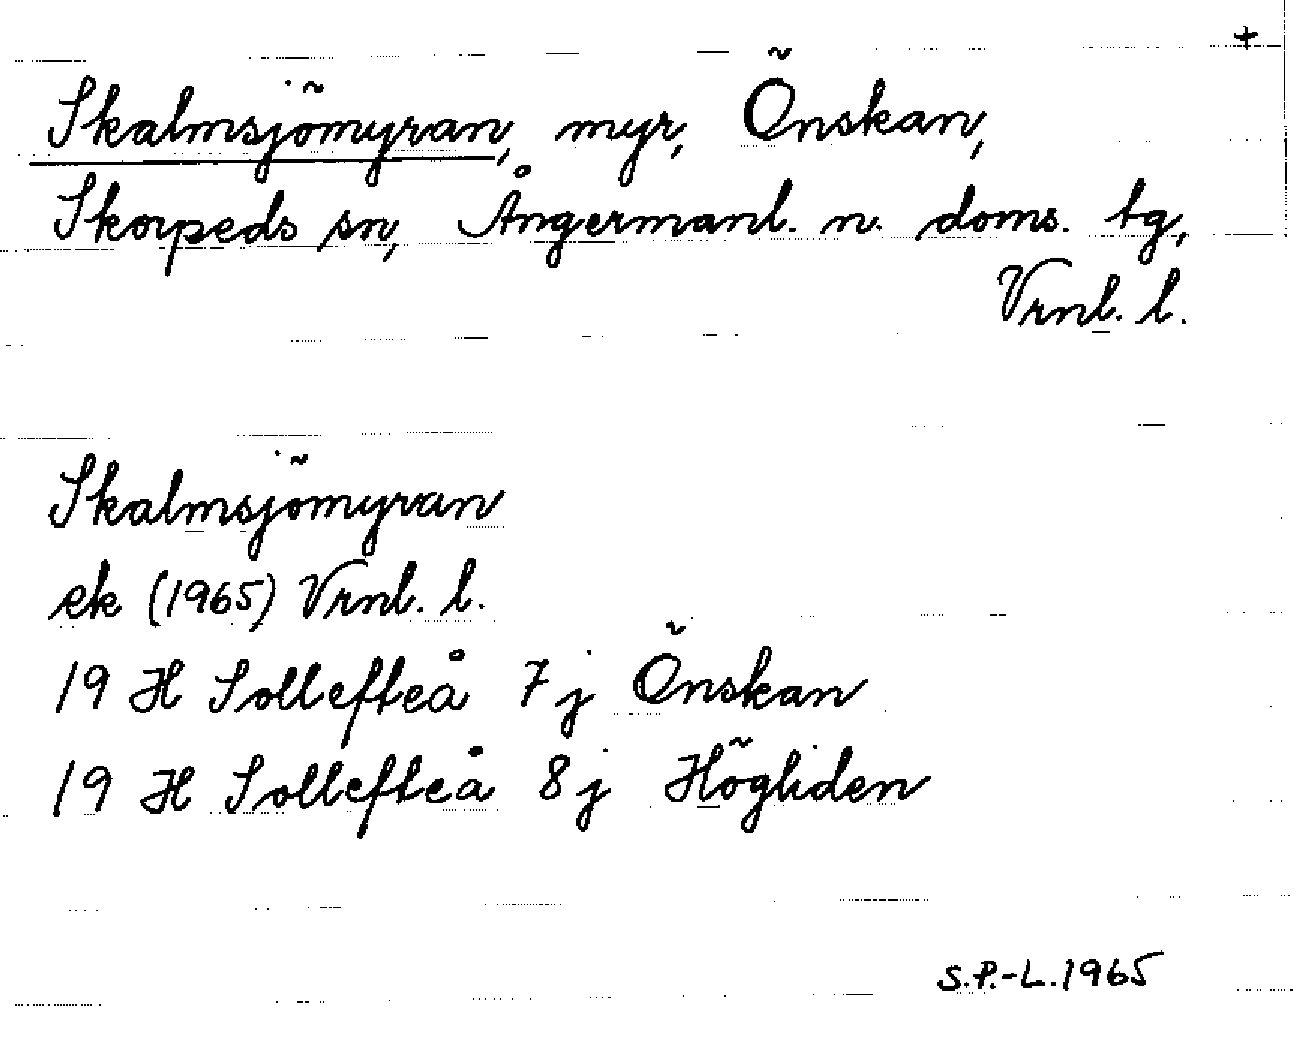 +
Skalmsjömyran, myr, Önskan,
Skorpeds sn, Ångermanl. n. doms. tg,
Vrnl. l.
Skalmsjömyran
ek (1965) Vrnl. l.
19 H Sollefteå 7 j Önskan
19 H Sollefteå 8 j Högliden
S.P.-L. 1965